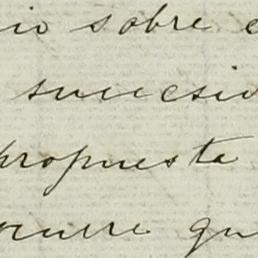 io sobre e
sucesio
propuesta
ocurre qu